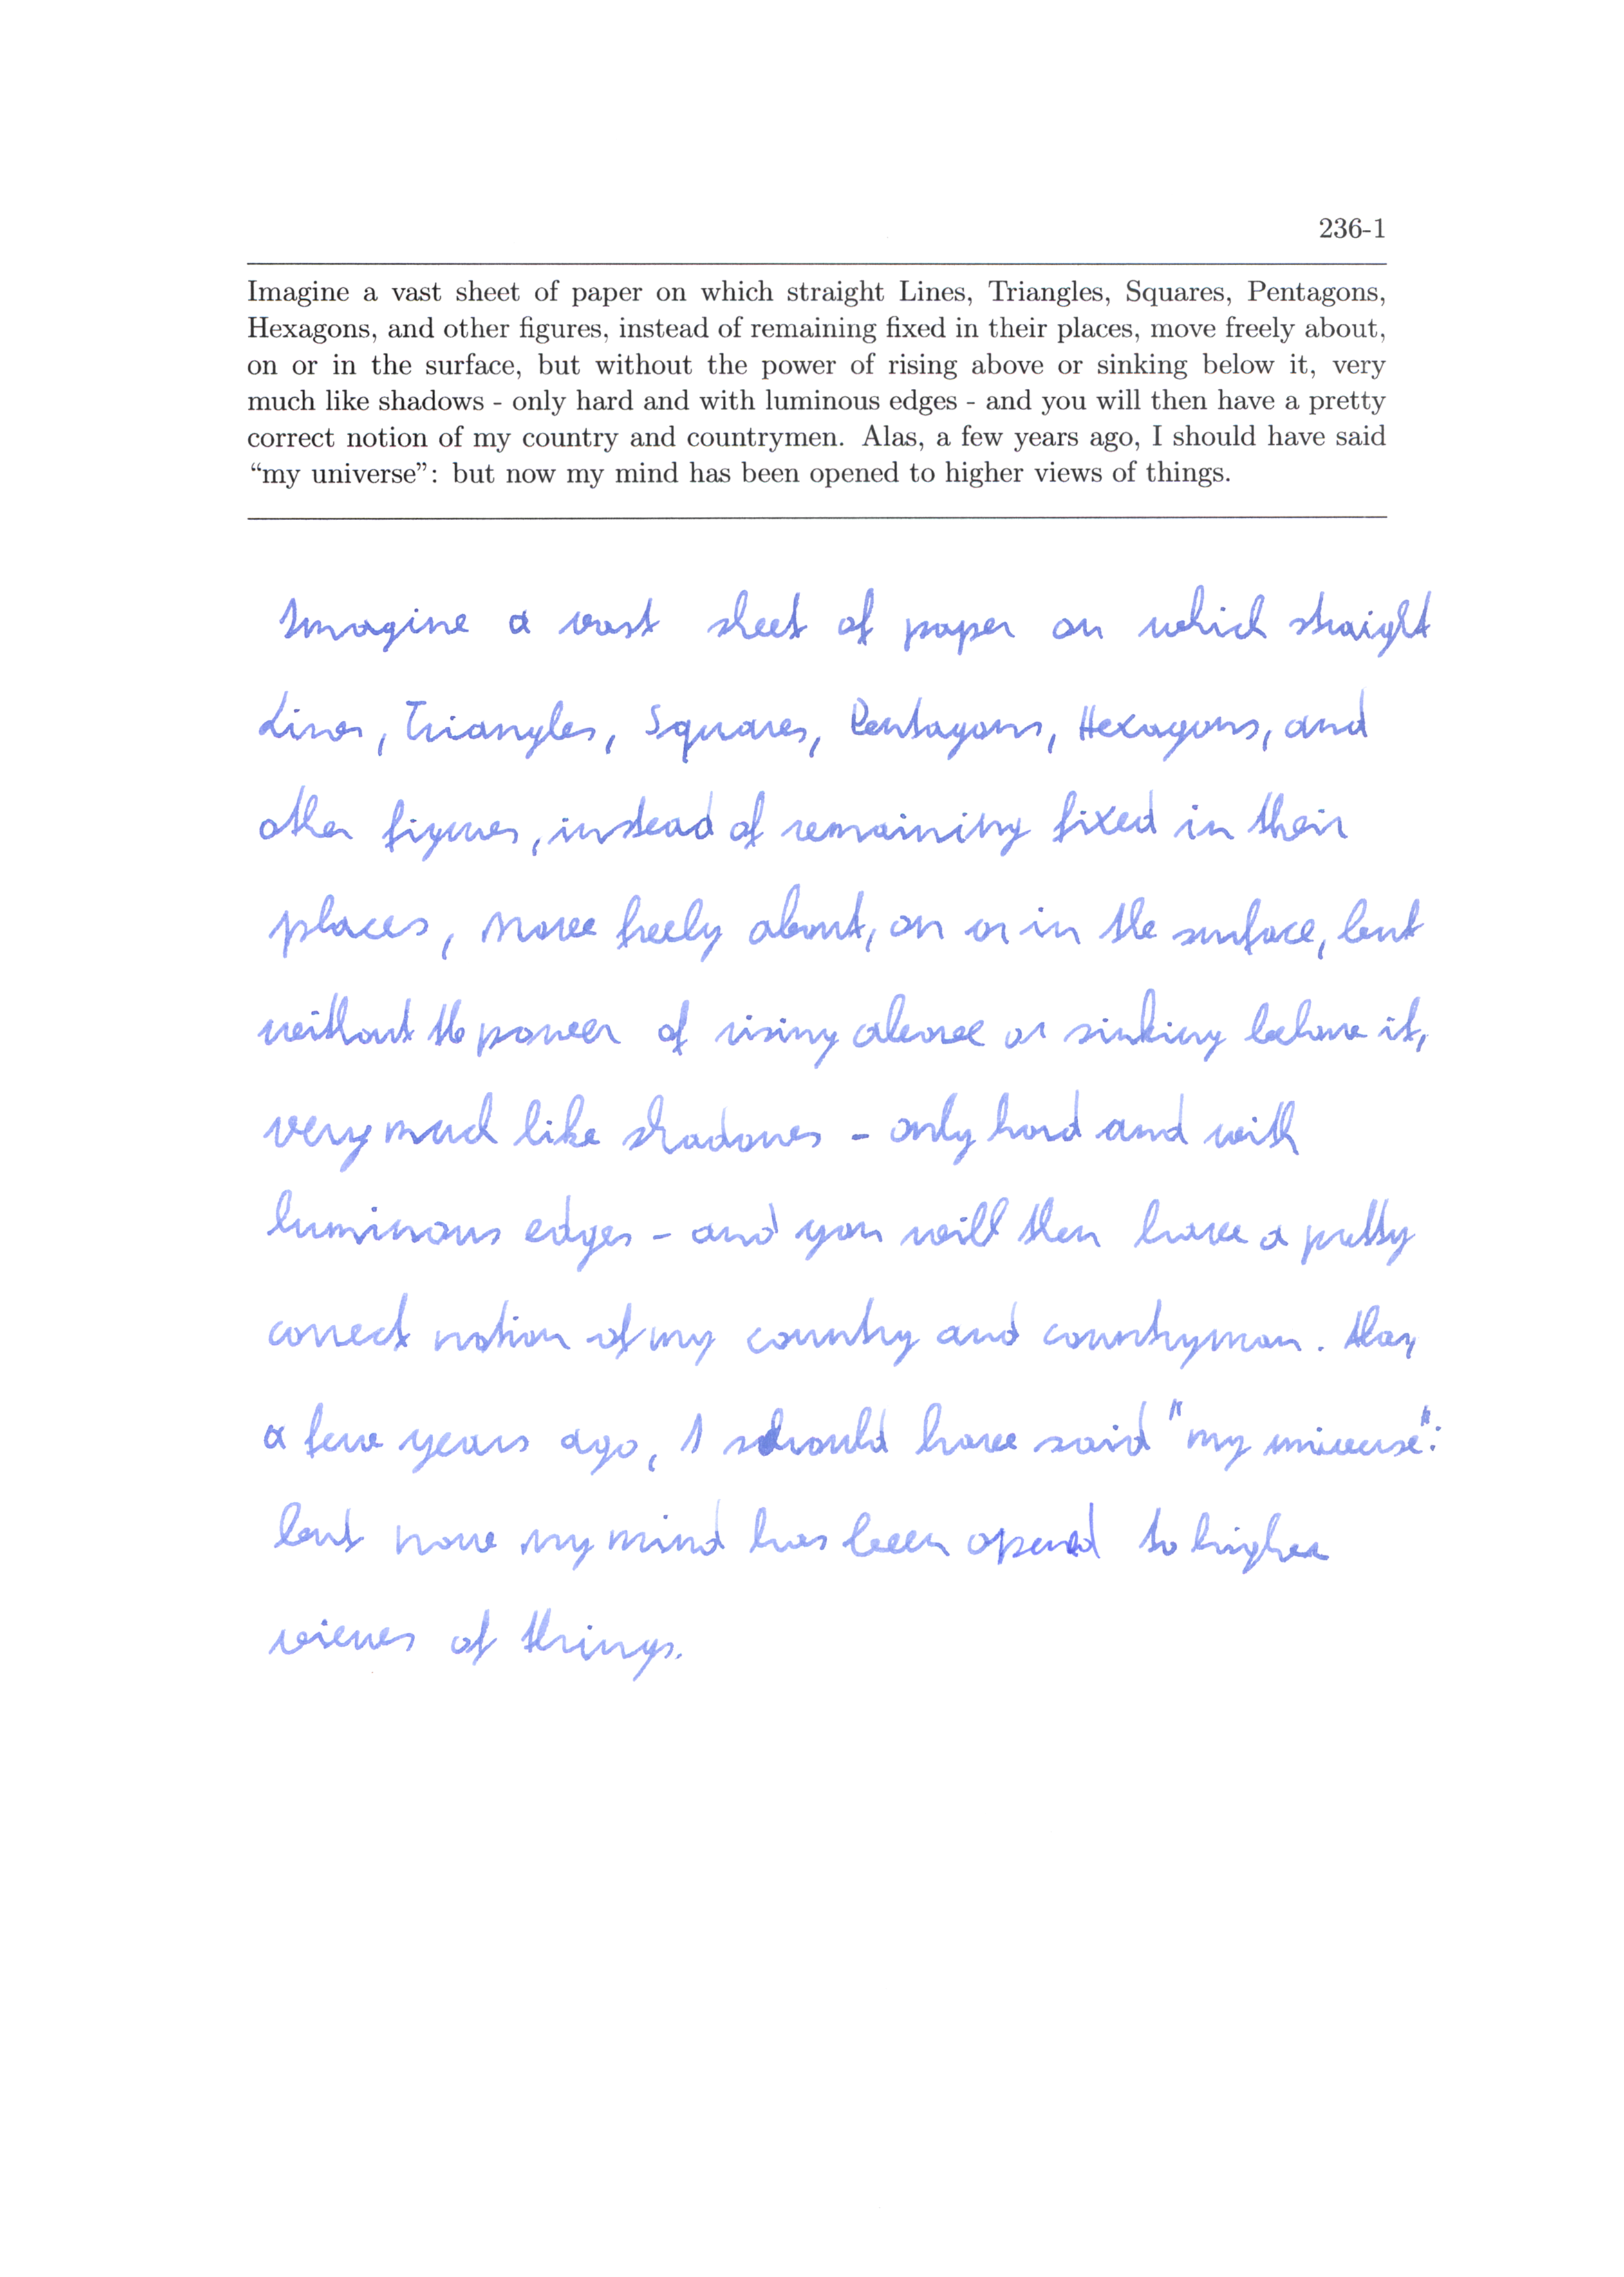 236-1
Imagine a vast sheet of paper on which straight Lines, Triangles, Squares, Pentagons,
Hexagons, and other figures, instead of remaining fixed in their places, move freely about,
on or in the surface, but without the power of rising above or sinking below it, very
much like shadows - only hard and with luminous edges - and you will then have a pretty
correct notion of my country and countrymen. Alas, a few years ago, I should have said
“my universe”: but now my mind has been opened to higher views of things.
Imagine a vast sheet of paper on which straight
Lines, Triangles, Squares, Pentagons, Hexagons, and
other figures, instead of remaining fixed in their
places, move freely about, on or in the surface, but
without the power of rising above or sinking below it,
very much like shadows - only hard and with
luminous edges - and you will then have a pretty
correct notion of my country and countryman. Alas,
a few years ago, I should have said "my universe":
but now my mind has been opened to higher
views of things.